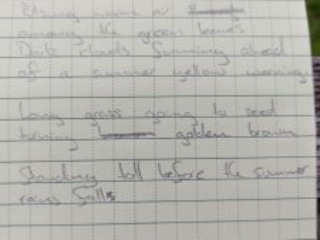 among the green leaves
Dark clouds looming ahead
of a summer yellow warning.
Long grass going to seed
turning golden brown
Standing tall before the summer
rains falls